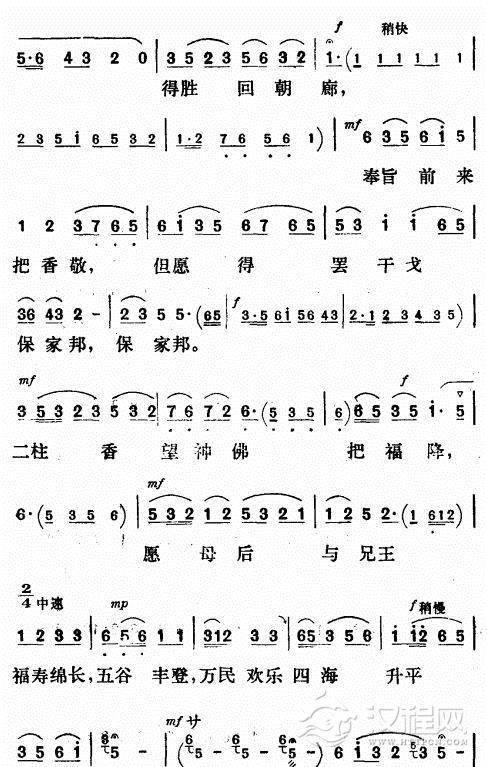 f 稍快
5·6 43 2 0 | 35 23 56 32 | 1·(1 11 1 1 |
得胜 回朝廊，
235i 6532 | 1·2 76 56 1) | mf 6 35 6i 5 |
奉旨前来
1 2 3765 | 6i35 67 65 | 53 i i 65 |
把香敬，但愿得罢干戈
36 43 2 - | 2 35 5·(65 | f 3·56i 5643 | 2·123435) |
保家邦，保家邦。
mf f
3 5323 532 | 76 72 6·(5 35 | 6)65 35 1· 5 |
二柱香望神佛把福降，
mf
6·(5 35 6) | 532 12 5321 | 1252·(1 612) |
愿母后与兄王
2/4 中速 mp f 稍慢
1 2 33 | 656 11 | 312 33 | 65 353 | i i2 65 |
福寿绵长，五谷丰登，万民欢乐四海升平
mf サ
35 6i | 5 - | (5 5 - | 6i32 35 - |
汉程网